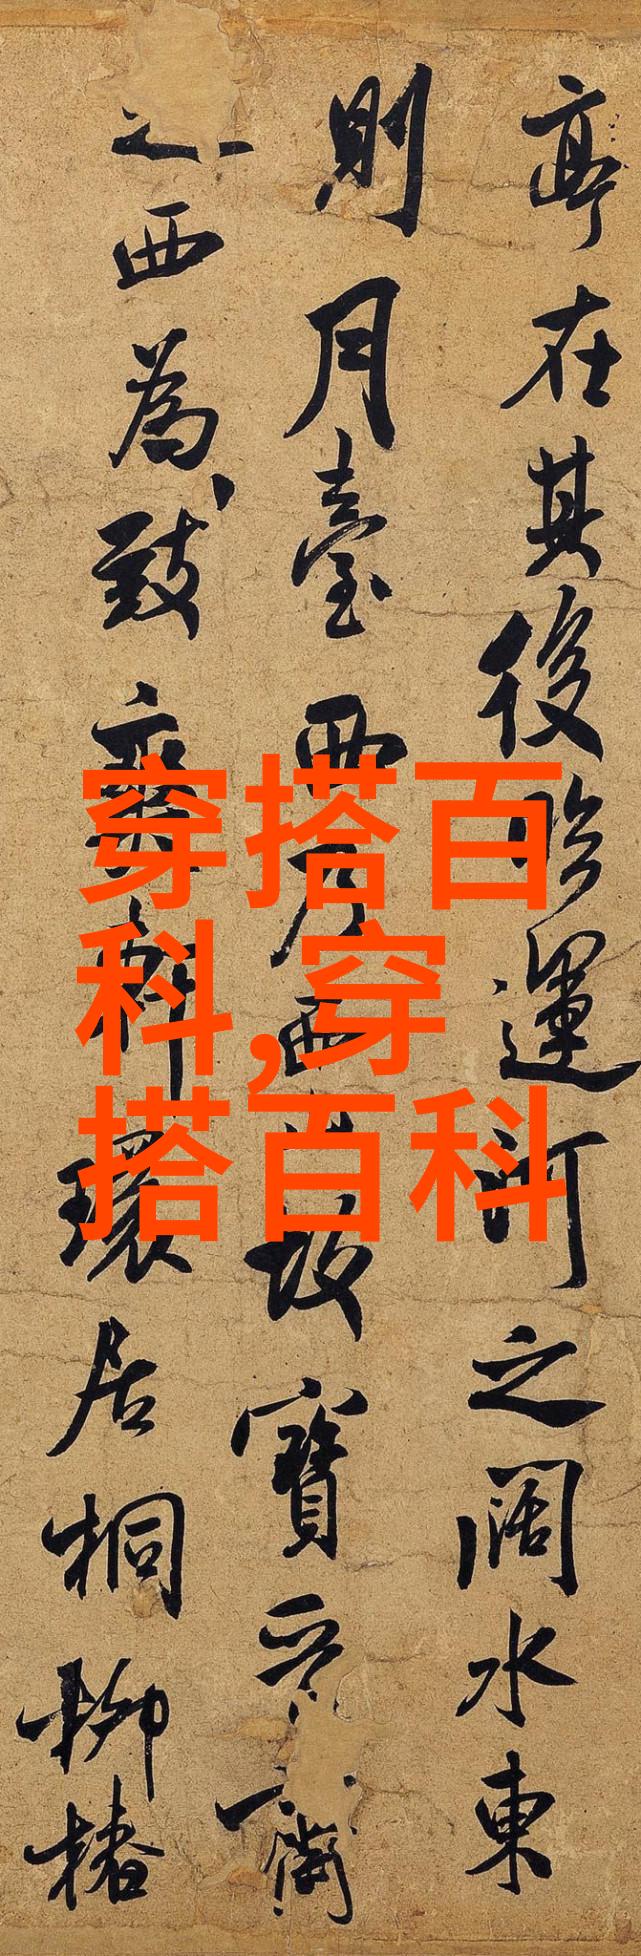 亭在其後臨運河之闊水東
則月臺西乃西故寶晉齋
之西為致爽軒環居桐柳椿
穿搭百
科,穿
搭百科